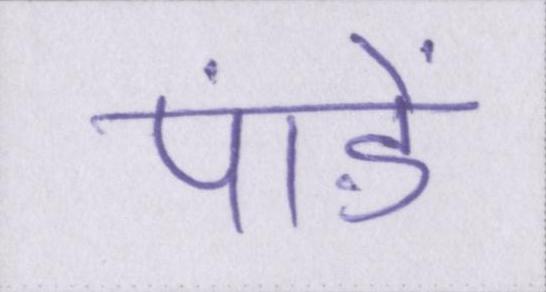 पांड़ें